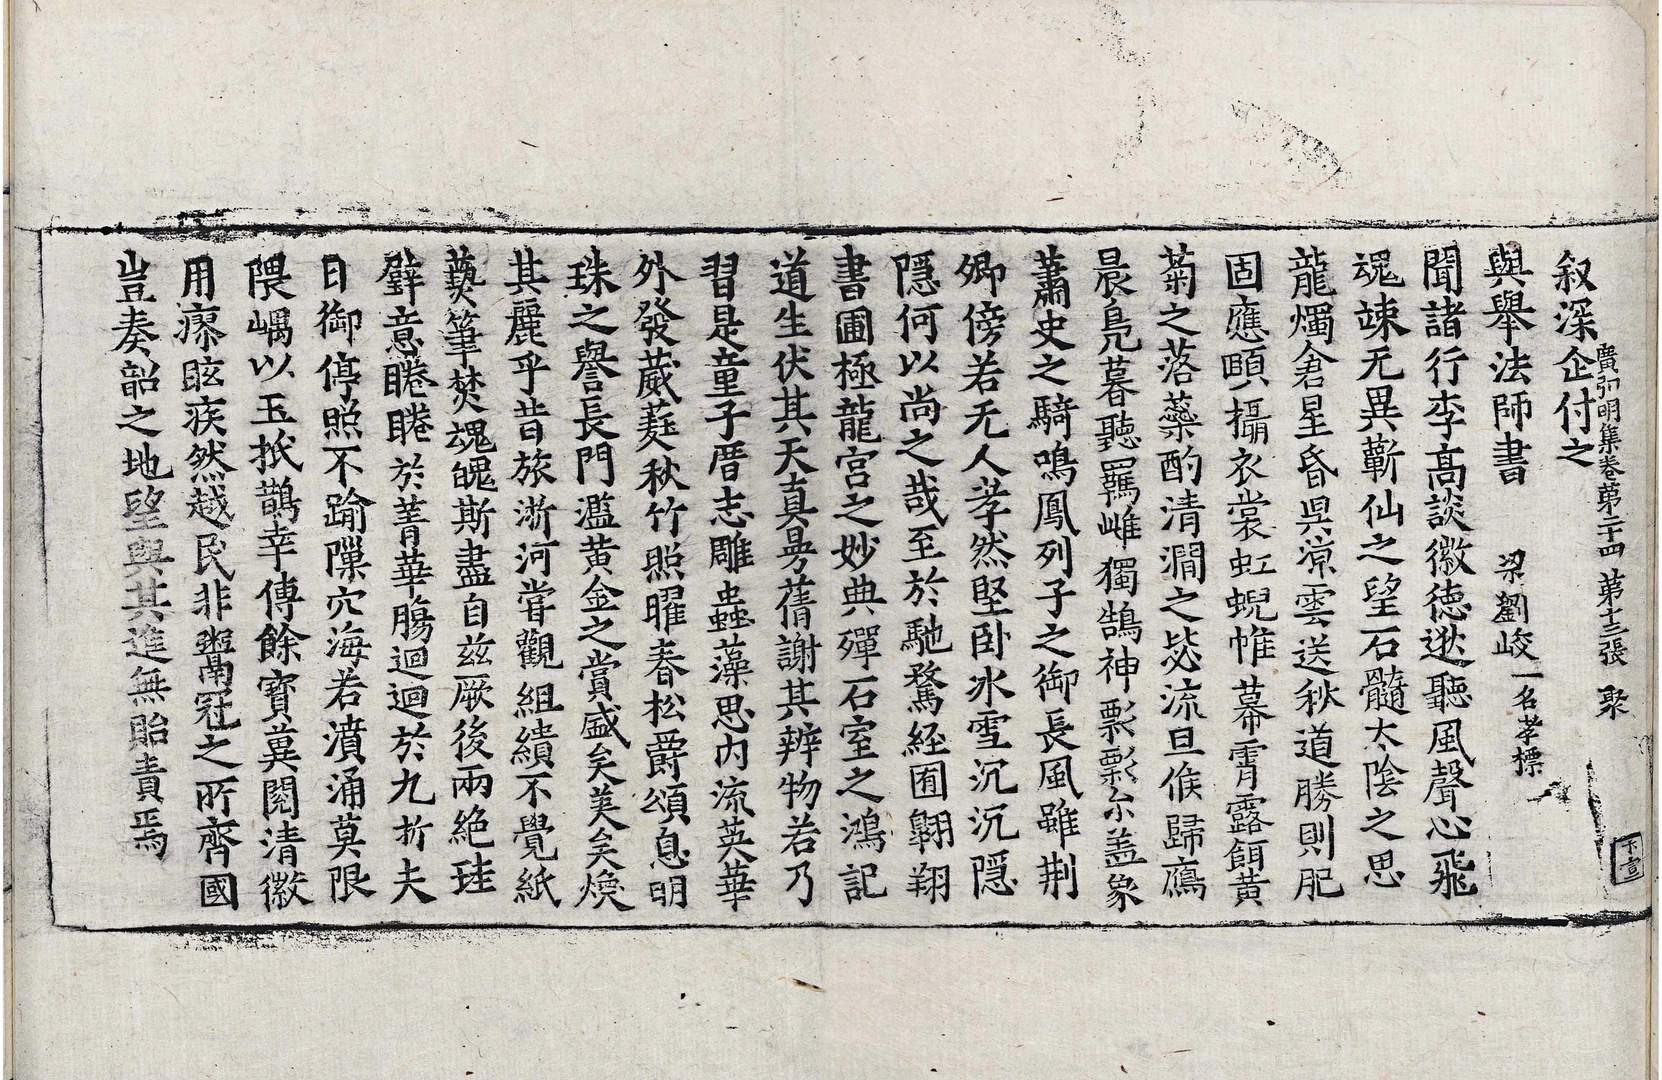 叙深企付之
廣弘明集卷第二十四 第十三張 聚
與舉法師書 梁劉峻一名孝標
聞諸行李高談徽德逖聽風聲心飛
魂竦无異蘄仙之望石髓太陰之思
龍燭倉星昏昊涼雲送秋道勝則肥
固應頤攝衣裳虹蜺帷幕霄露餌黄
菊之落蘂酌清澗之毖流旦候歸鴈
晨鳧暮聽羈雌獨鵠神飄飄尒盖象
蕭史之騎鳴鳳列子之御長風雖荆
卿傍若无人孝然堅卧冰雪沉沉隱
隱何以尚之哉至於馳騖經囿翱翔
書圃極龍宮之妙典殫石室之鴻記
道生伏其天真曇蒨謝其辨物若乃
習是童子厝志雕蟲藻思内流英華
外發葳蕤秋竹照曜春松爵頌息明
珠之譽長門濫黄金之賞盛矣美矣煥
其麗乎昔旅浙河嘗觀組繢不覺紙
爇筆焚魂魄斯盡自兹厥後兩絶珪
璧意睠睠於菁華腸迴迴於九折夫
日御停照不踰隟穴海若濆涌莫限
隈嵎以玉抵鵲幸傅餘寶冀閱清徽
用瘳眩疾然越民非鬻冠之所齊國
豈奏韶之地望與其進無貽責焉
卞宣